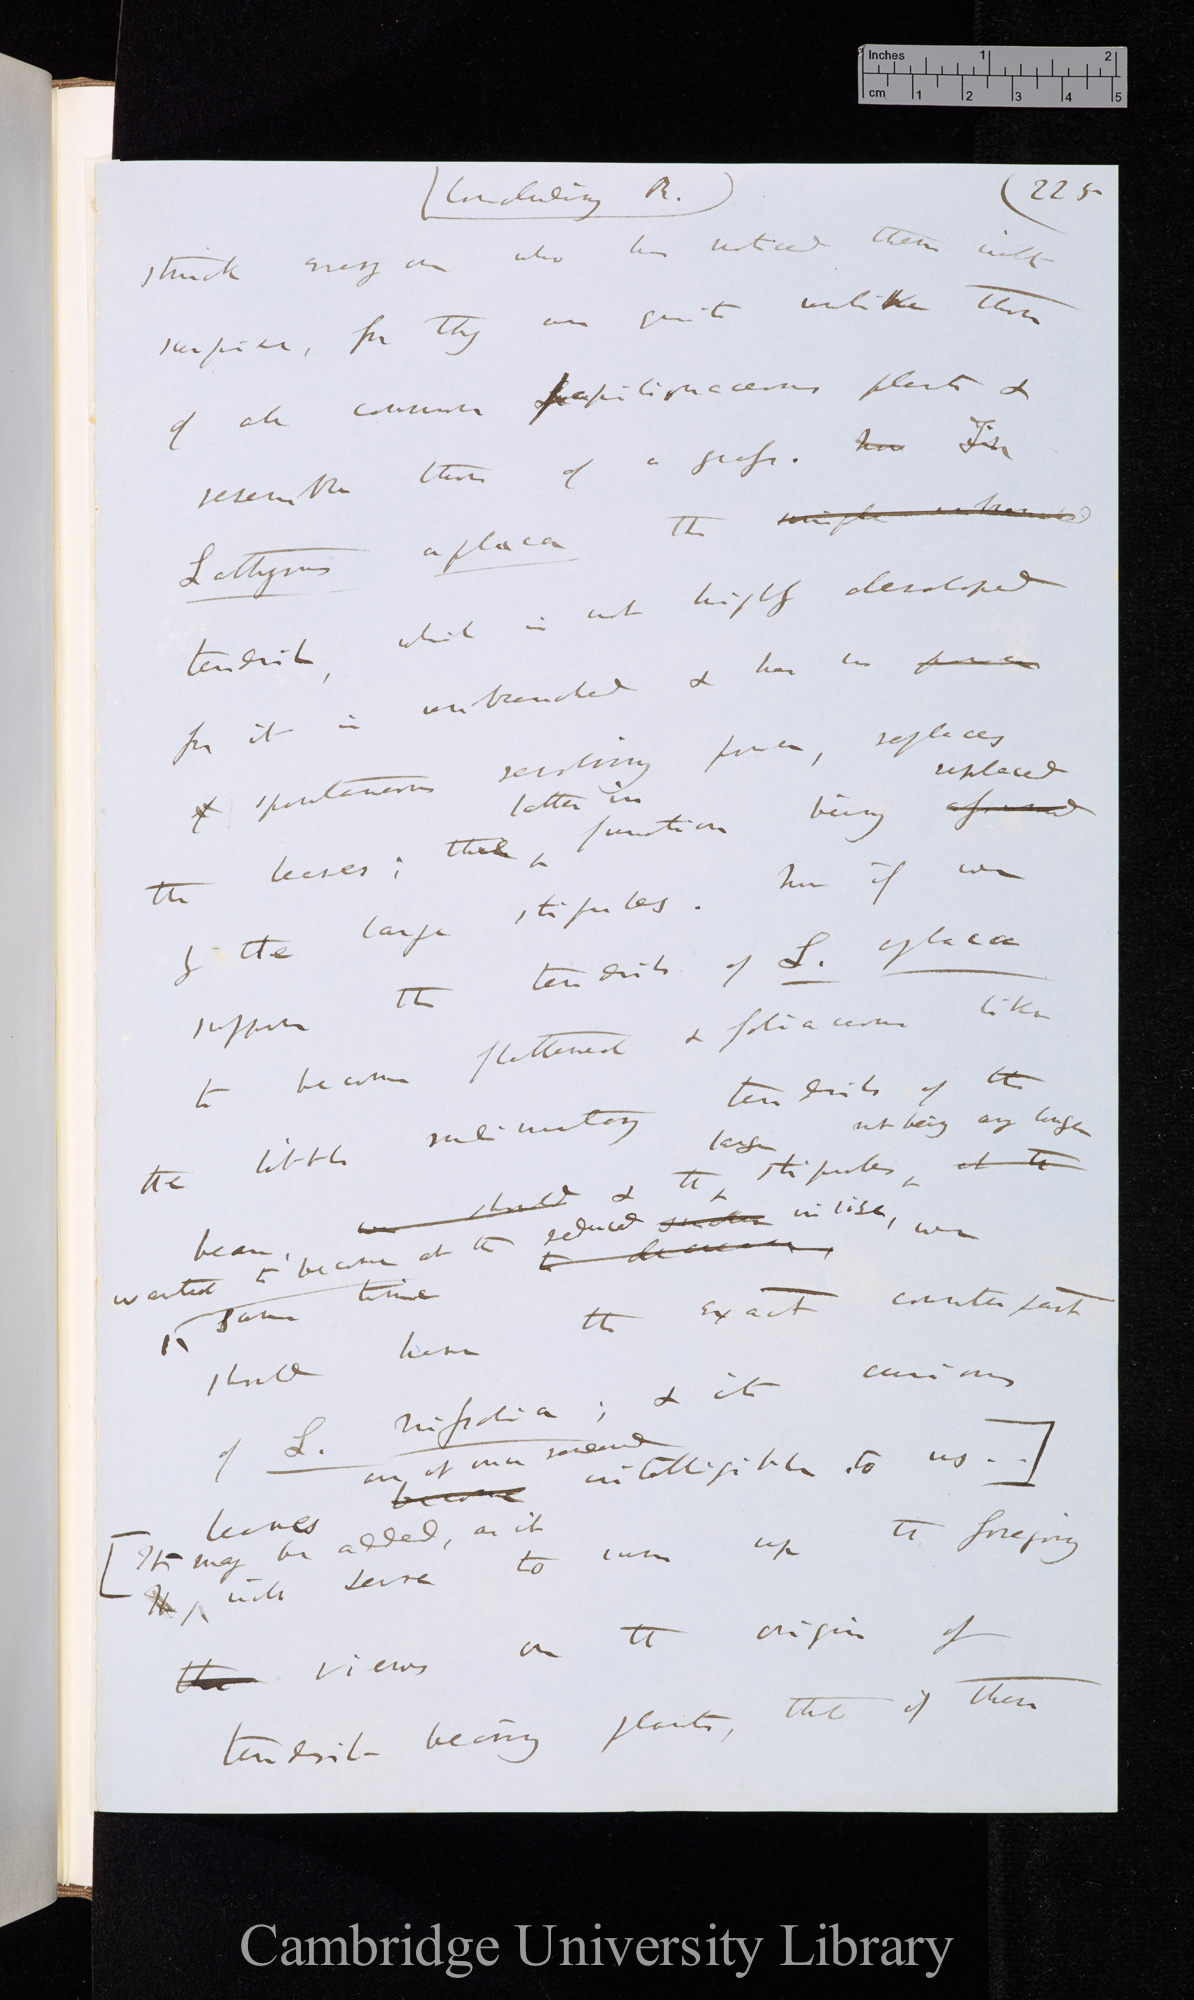 Inches 1 2
cm 1 2 3 4 5
(Concluding R.)
(225
struck every one who has noticed them with
surprise, for they are quite unlike those
of all common papilionaceous plants &
resemble those of a grass. In
Lathyrus aphaca the
tendril, which is not highly developed
for it is unbranched & has no power
spontaneous revolving power, replaces
replaced
latter in
the leaves; the function being
by the large stipules. Now if we
suppose the tendrils of L. aphaca
to become flattened & foliaceous like
the little rudimentary tendrils of the
large not being any longer
bean, we should & the stipules, at the
wanted to become at the reduced in size, we
same time
should have the exact counterpart
of L. nissolia; & its curious
are at once rendered
leaves become intelligible to us.-]
[It may be added, as it
will serve to sum up the foregoing
the views on the origin of
tendril-bearing plants, that if these
Cambridge University Library